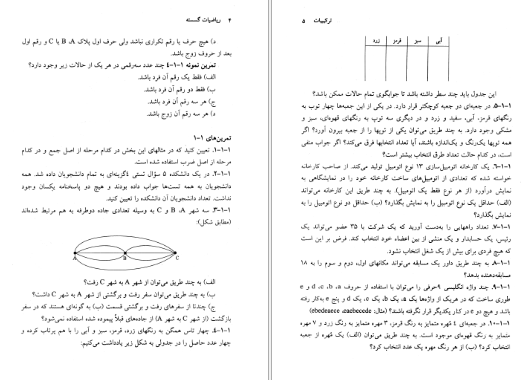 ۴ ریاضیات گسسته
د) هیچ حرف یا رقم تکراری نباشد ولی حرف اول پلاک A، B یا C و رقم اول
بعد از حروف زوج باشد.
تمرین نمونه ۱-۱-۴ چند عدد سه‌رقمی در هر یک از حالات زیر وجود دارد؟
الف) فقط یک رقم آن فرد باشد.
ب) فقط دو رقم آن فرد باشد.
ج) هر سه رقم آن فرد باشد.
د) هر سه رقم آن زوج باشد.
تمرین‌های ۱-۱
۱-۱-۱. تعیین کنید که در مثالهای این بخش در کدام مرحله از اصل جمع و در کدام
مرحله از اصل ضرب استفاده شده است.
۱-۱-۲. در یک دانشکده ۵ سؤال تستی ۴گزینه‌ای به تمام دانشجویان داده شد. همه
دانشجویان به همه تست‌ها جواب دادند و هیچ دو پاسخنامه یکسان وجود
نداشت. تعداد دانشجویان آن دانشکده را تعیین کنید.
۱-۱-۳. سه شهر A، B و C به وسیله تعدادی جاده دوطرفه به هم مرتبط شده‌اند
(مطابق شکل):
A B C
الف) به چند طریق می‌توان از شهر A به شهر C رفت؟
ب) به چند طریق می‌توان سفر رفت و برگشتی از شهر A به شهر C داشت؟
ج) چندتا از سفرهای رفت و برگشتی قسمت (ب) به گونه‌ای هستند که در سفر
بازگشت (از شهر C به شهر A) از جاده‌های قبلاً پیموده شده استفاده نمی‌شود؟
۱-۱-۴. چهار تاس همگن به رنگهای زرد، قرمز، سبز و آبی را با هم پرتاب کرده و
چهار عدد حاصل را در جدولی به شکل زیر یادداشت می‌کنیم:
ترکیبیات ۵
آبی سبز قرمز زرد
این جدول باید چند سطر داشته باشد تا جوابگوی تمام حالات ممکن باشد؟
۱-۱-۵. در جعبه‌ای دو جعبه کوچکتر قرار دارد. در یکی از این جعبه‌ها چهار توپ به
رنگهای قرمز، آبی، سفید و زرد و در دیگری سه توپ به رنگهای قهوه‌ای، سبز و
مشکی وجود دارد. به چند طریق می‌توان یکی از توپها را از جعبه بیرون آورد؟ اگر
همه توپها یک‌رنگ و یک‌اندازه باشند، آیا تعداد انتخابها فرق می‌کند؟ اگر جواب منفی
است، در کدام حالت تعداد طرق انتخاب بیشتر است؟
۱-۱-۶. یک کارخانه اتومبیل‌سازی ۱۳ نوع اتومبیل تولید می‌کند. از صاحب کارخانه
خواسته شده که تعدادی از اتومبیل‌های ساخت کارخانه خود را در نمایشگاهی به
نمایش درآورد (از هر نوع فقط یک اتومبیل). به چند طریق این کارخانه می‌تواند
(الف) حداقل یک نوع اتومبیل را به نمایش بگذارد؟ (ب) حداقل دو نوع اتومبیل را به
نمایش بگذارد؟
۱-۱-۷. تعداد راههایی را به‌دست آورید که یک شرکت با ۳۵ عضو می‌تواند یک
رئیس، یک حسابدار و یک منشی از بین اعضاء خود انتخاب کند. فرض بر این است
که هیچ فردی برای بیش از یک شغل انتخاب نشود.
۱-۱-۸. به چند طریق داور یک مسابقه می‌تواند مکانهای اول، دوم و سوم را به ۱۸
مسابقه‌دهنده بدهد؟
۱-۱-۹. چند واژه انگلیسی ۹حرفی را می‌توان با استفاده از حروف a، b، c، d و e
طوری ساخت که در هریک از واژه‌ها یک a، یک b، یک c، یک d و پنج e به‌کار رفته
باشد و هیچ دو e در کنار یکدیگر قرار نگرفته باشند؟
۱-۱-۱۰. در جعبه‌ای ۴ مهره متمایز به رنگ قرمز، ۳ مهره متمایز به رنگ زرد و ۷ مهره
متمایز به رنگ قهوه‌ای موجود است. به چند طریق می‌توان (الف) یک مهره از جعبه
انتخاب کرد؟ (ب) از هر رنگ مهره یک عدد انتخاب کرد؟